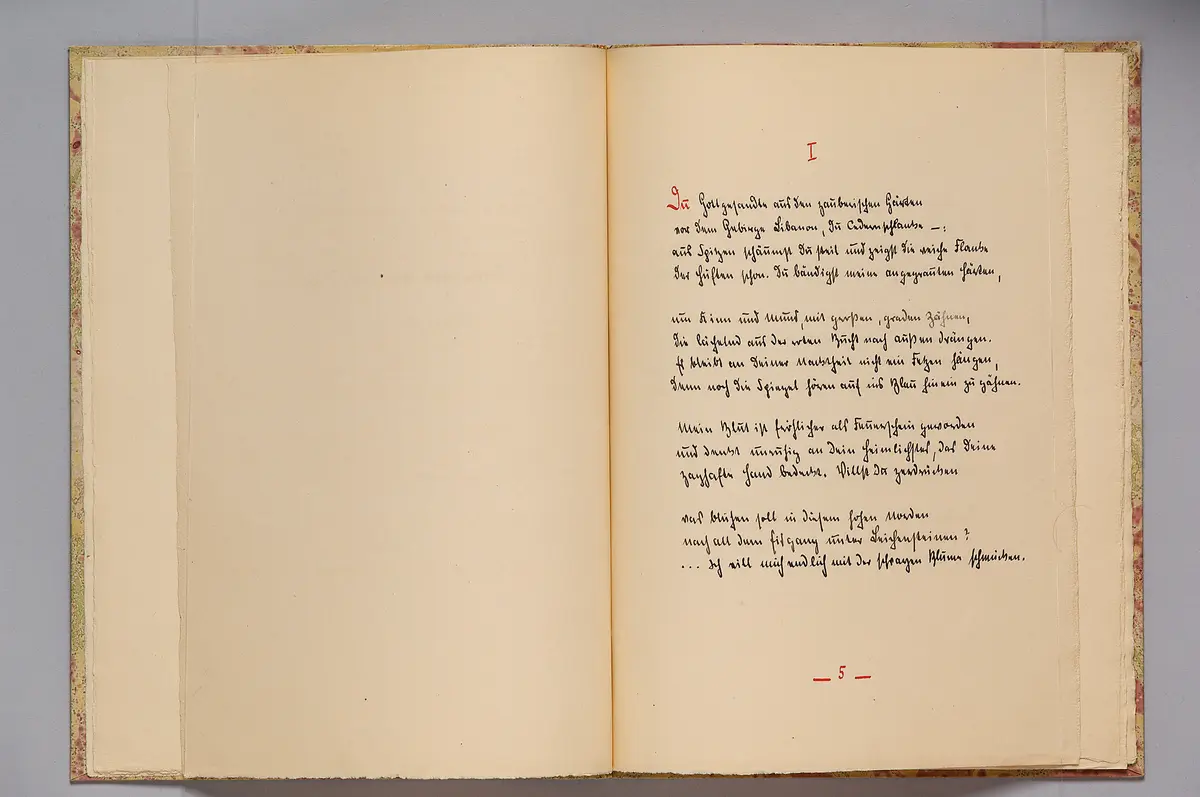 I
Du Gottgesandte aus den zauberischen Gärten
vor dem Gebirge Libanon, Du Cedernschlanke —:
aus Spitzen schäumst Du steil und zeigst die weiche Flanke
der Hüften schon. Du bändigst meine angegrauten Härten,
um Kinn und Mund, mit großen, graden Zähnen,
die lächelnd aus der roten Bucht nach außen drängen.
Es bleibt an Deiner Nacktheit nicht ein Fetzen hängen,
denn noch die Spiegel hören auf ins Blau hinein zu gähnen.
Mein Blut ist fröhlicher als Feuerschein geworden
und denkt unruhig an Dein Heimlichstes, das Deine
zaghafte Hand bedeckt. Willst Du zerdrücken
was blühen soll in diesem hohen Norden
nach all dem Eisgang unter Leichensteinen?
... Ich will mich endlich mit der schwarzen Blume schmücken.
— 5 —